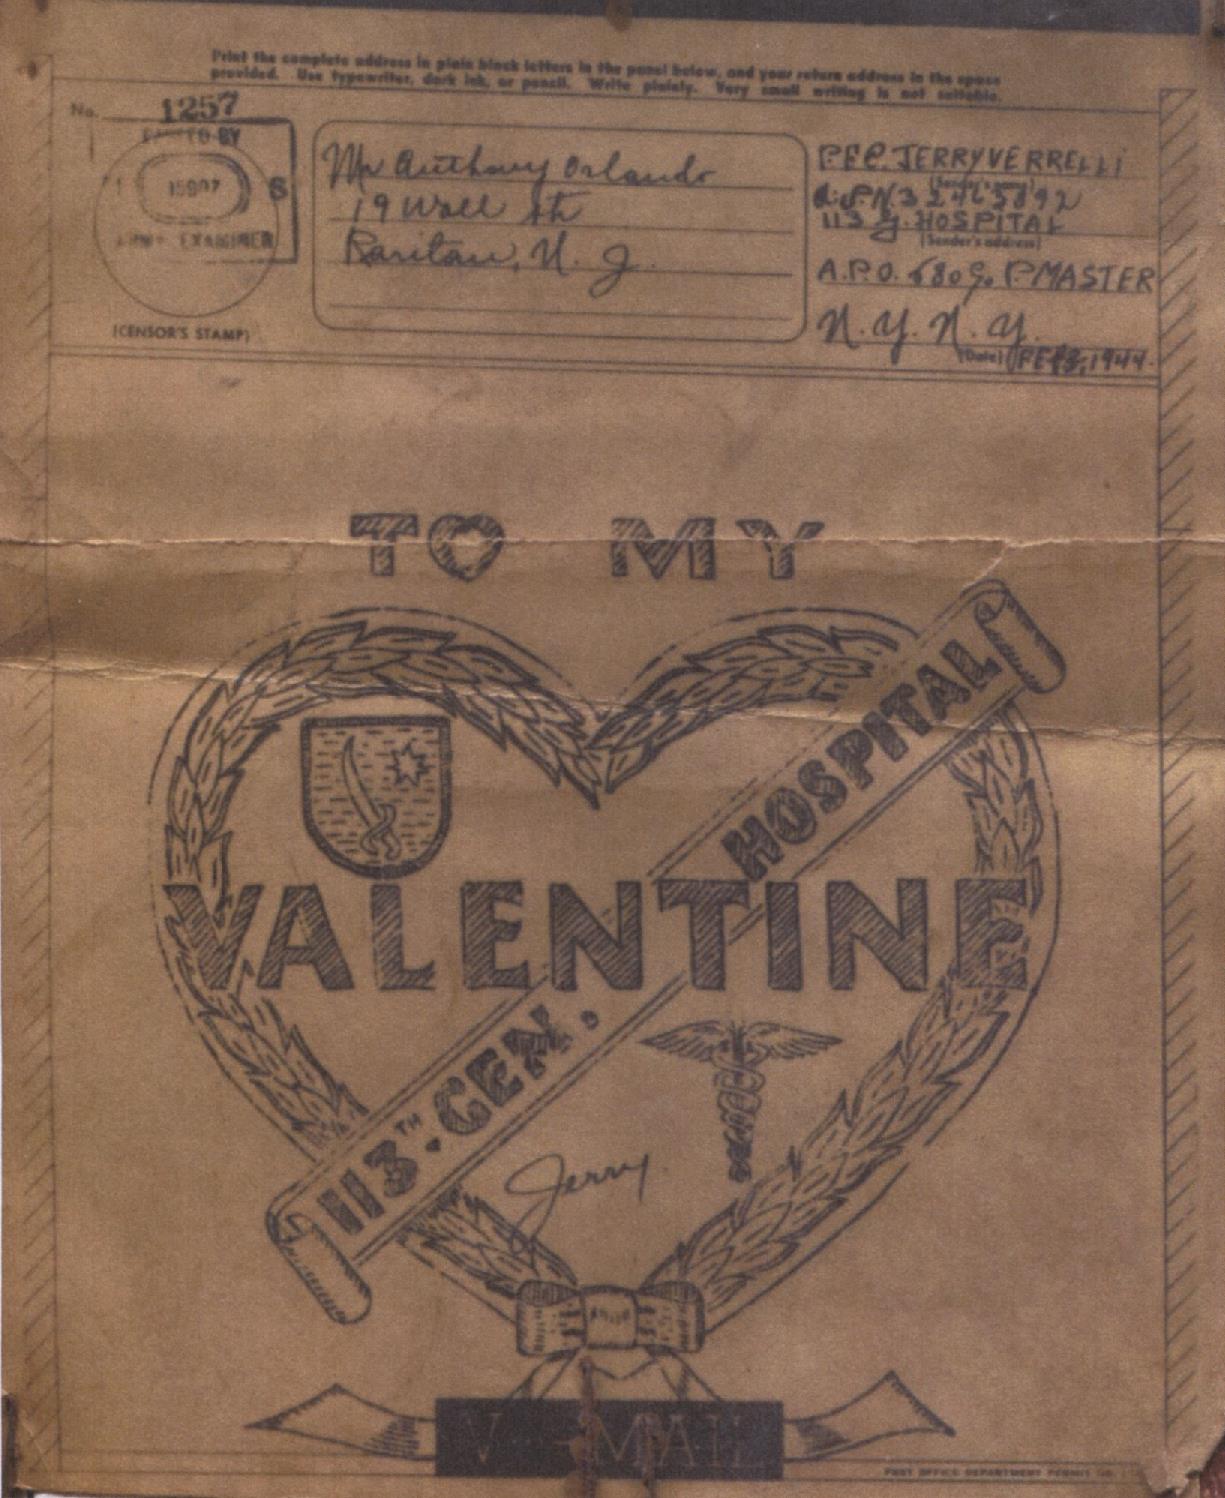 Print the complete address in plain block letters in the panel below, and your return address in the space
provided. Use typewriter, dark ink, or pencil. Write plainly. Very small writing is not suitable.
No. 1257
BY
15907
S
ARMY EXAMINER
(CENSOR'S STAMP)
Mr Anthony Orlando
19 Wall St
Raritan, N. J.
PFC. JERRY VERRELLI
A.S.N. 32465892
113 G. HOSPITAL
(Sender's address)
A.P.O. 680 % P. MASTER
N. Y. N. Y.
(Date) 1944.
TO MY
HOSPITAL
VALENTINE
113TH. GEN.
Jerry.
V-MAIL
POST OFFICE DEPARTMENT PERMIT NO.